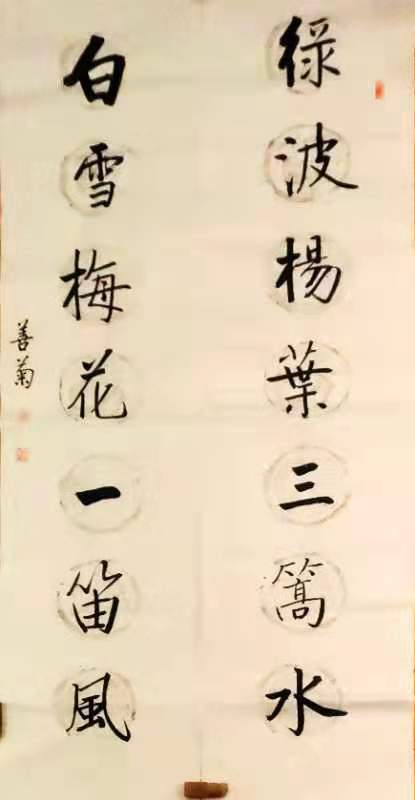 綠波楊葉三篙水
白雪梅花一笛風
善菊